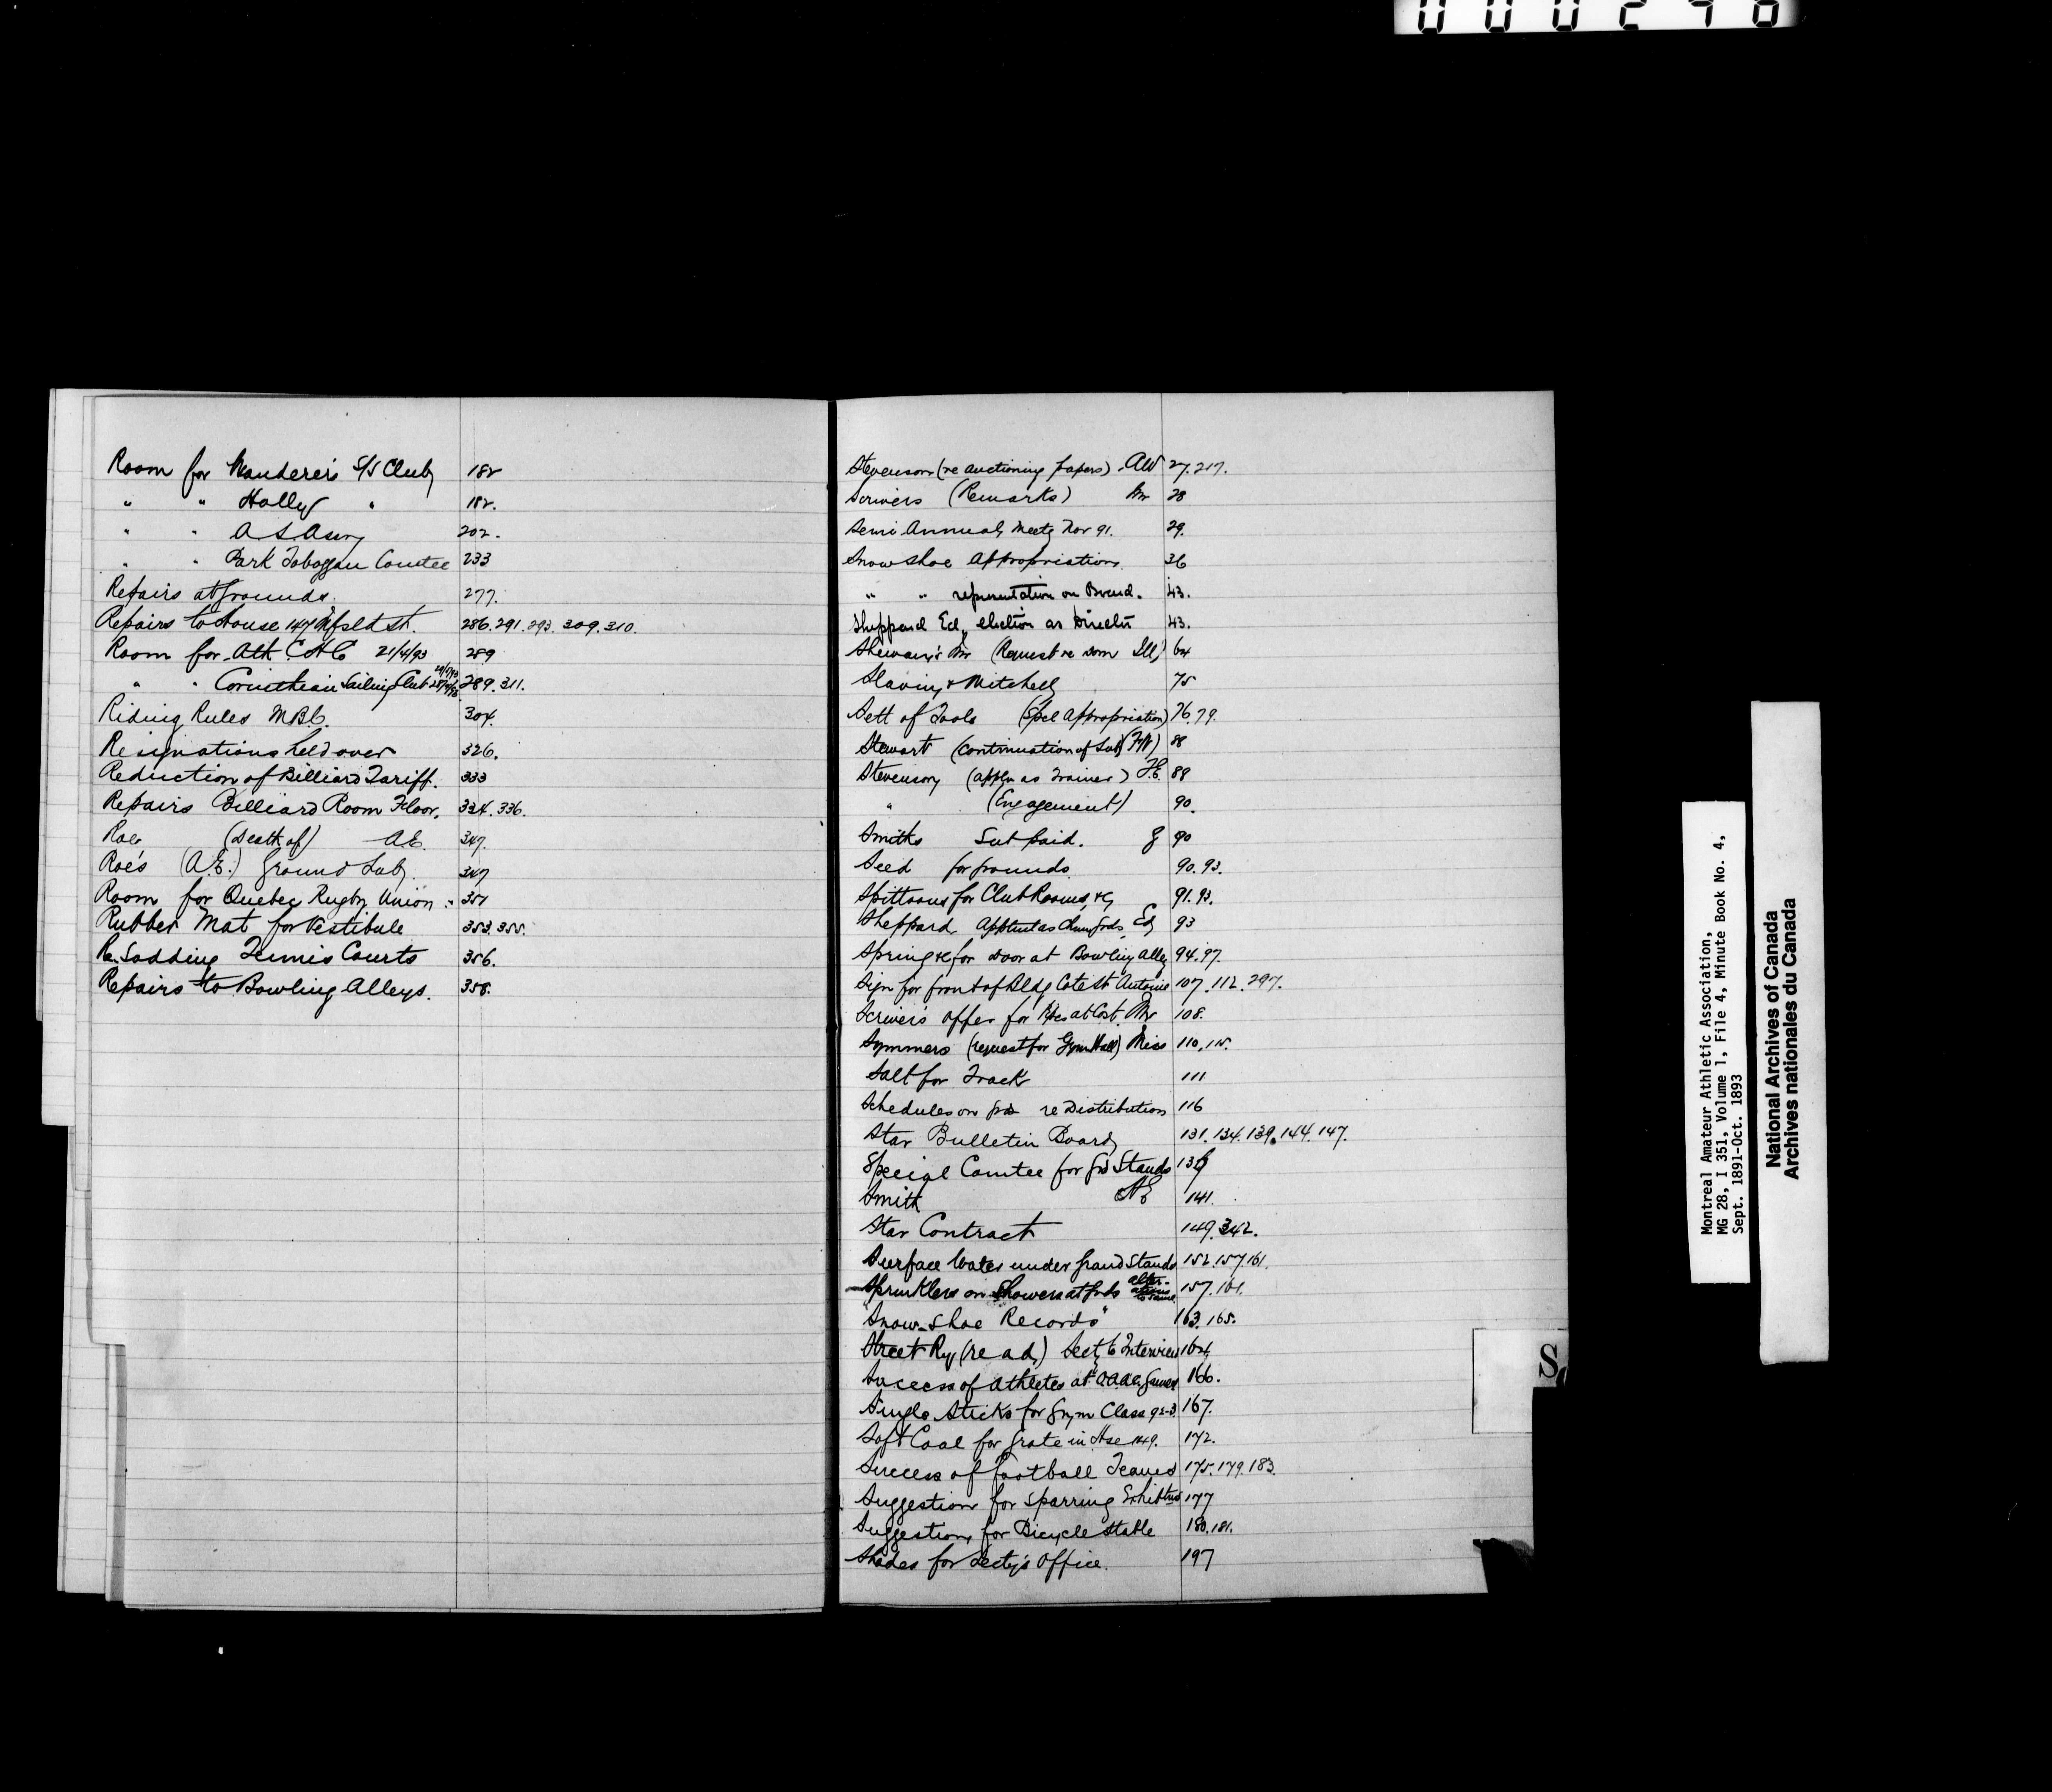 Room for Wanderers S/S Club 182
" " Holly " 182.
" " A S Assn 202.
" " Park Toboggan Comtee 233
Repairs at Grounds. 277.
Repairs to House 147 Mfsld St. 286. 291. 293. 309. 310.
Room for Ath. C H C 21/4/93 289
" " Corinthian Sailing Club 289. 311.
Riding Rules M.B.C. 304.
Resignations held over 326.
Reduction of Billiard Tariff. 333
Repairs Billiard Room Floor. 334. 336.
Roe, (Death of) A.E. 347.
Roe's (A.E.) Ground Sub. 347
Room for Quebec Rugby Union. 351
Rubber Mat for Vestibule 353. 355.
Re Sodding Tennis Courts 356.
Repairs to Bowling Alleys. 358.
Stevenson (re auctioning papers) AW 27. 217.
Scrivers (Remarks) Mr 28
Semi Annual Meetg Nov 91. 29.
Snow Shoe Appropriation 36
" " representation on Board. 43.
Sheppard Ed, election as Director 43.
(Request re Dom Ill) 64
Slavin & Mitchell 75
Sett of Tools (Spcl Appropriation) 76. 79.
Stewart (continuation of Sub) FW) 88
Stevenson (appln as Trainer) F.E. 89
" (Engagement) 90.
Smiths Sub paid. J 90
Seed for Grounds 90. 93.
Spittoons for Club Rooms, &c, 91. 93.
Sheppard Apptmt as Chrm Grds, Ed 93
Spring &c for Door at Bowling Alley 94. 97.
Sign for front of Bldg Cote St Antoine 107. 112. 297.
Scriver's offer for at Cost. Mr 108.
Symmers (request for Gym Hall) Miss 110, 115.
Salt for Track 111
Schedules on Grds re Distribution 116
Star Bulletin Board 131. 134. 139. 144. 147.
Special Comtee for Grd Stands 139
Smith A E 141.
Star Contract 149. 342.
Surface Water under Grand Stands 152. 157. 161.
Sprinklers on Showers at Grds alter-ations to same 157. 161.
"Snow-Shoe Records" 163. 165.
Street Ry (re ad,) Secty to Interview 164
Success of Athletes at C.A.A.A. Games 166.
Single Sticks for Gym Class 92-3 167.
Soft Coal for Grate in Hse 1449. 172.
Success of Football Teams 175. 179. 183.
Suggestion for Sparring Exhibtns 177
Suggestion for Bicycle Stable 180. 181.
Shades for Secty's Office. 197
S
Montreal Amateur Athletic Association,
MG 28, I 351, Volume 1, File 4, Minute Book No. 4,
Sept. 1891-Oct. 1893
National Archives of Canada
Archives nationales du Canada